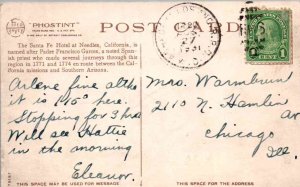 "PHOSTINT"
POST CARD
The Santa Fe Hotel at Needles, California, is
named after Padre Francisco Garces, a noted Span-
ish priest who made several journeys through this
region in 1771 and 1774 en route between the Cali-
fornia missions and Southern Arizona.
Arlene fine altho
it is 115° here.
Stopping for 3 hrs
Will see Hattie
in the morning
Eleanor.
THIS SPACE MAY BE USED FOR MESSAGE
1931
1 CENT 1
Mrs. Warmbrun
2110 N. Hamlin
av
Chicago
Ill.
THIS SPACE FOR ADDRESS ONLY